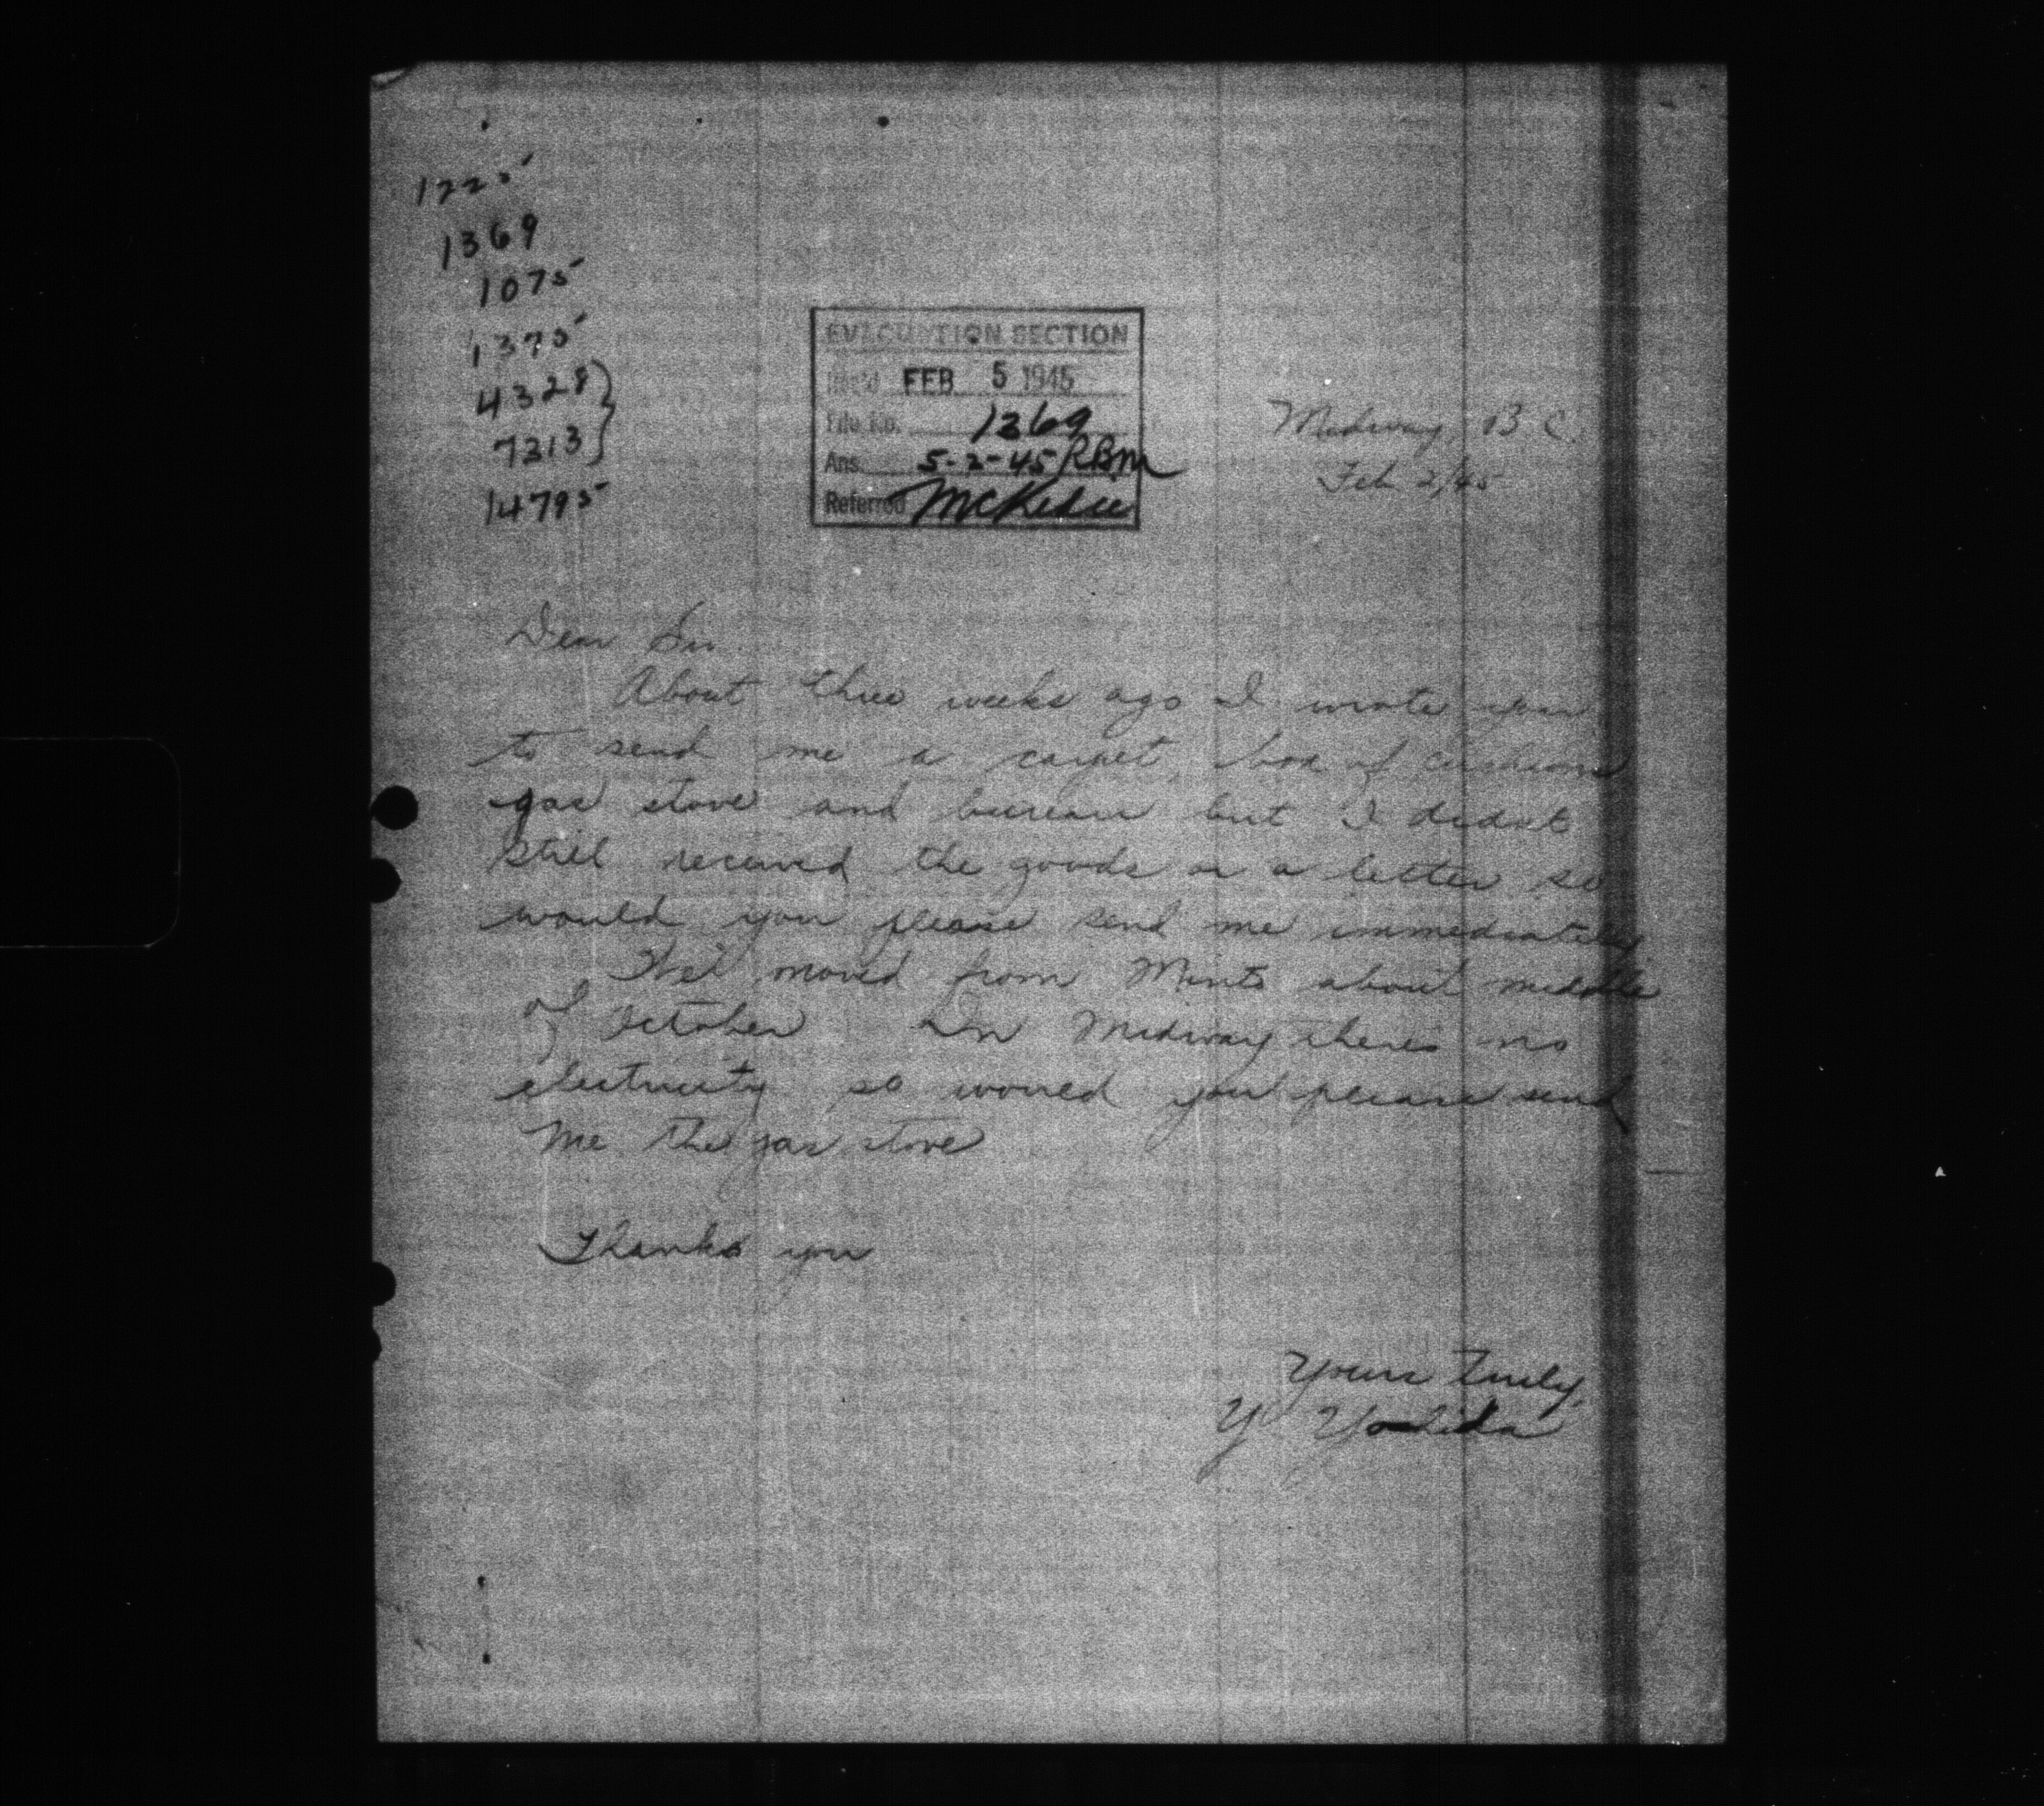 1225
1369
1075
1375
4328
7313
14795
EVACUATION SECTION
Rec'd FEB 5 1945
File No. 1369
Ans. 5-2-45 RBM
Referred McKedie
Midway, B.C.
Feb 2/45
Dear Sir.
About three weeks ago I wrote you
to send me a carpet, box of cushions
gas stove and bureau but I didnt
still received the goods or a letter so
would you please send me immediately
We moved from Minto about middle
of October In Midway theres no
electricity so would you please send
me the gas stove
Thanks you
Yours truly,
Y. Yoshida